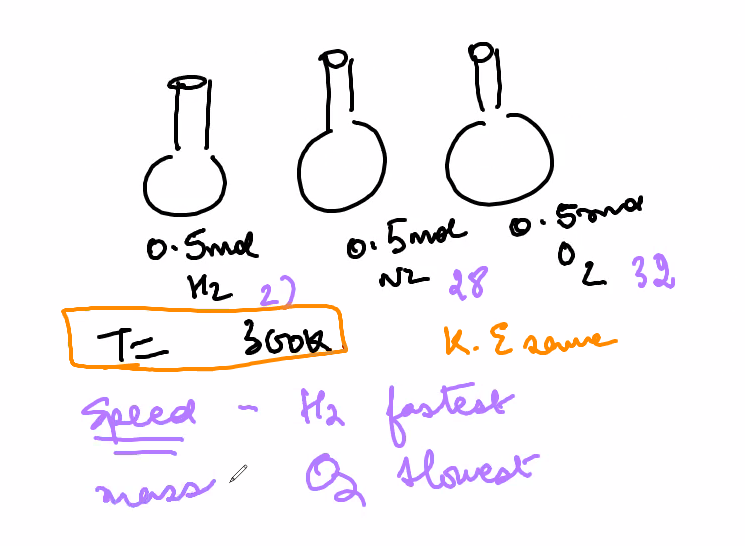 0.5mol 0.5mol 0.5mol
H2 2 N2 28 O2 32
T= 300K K.E same
Speed - H2 fastest
mass O2 slowest